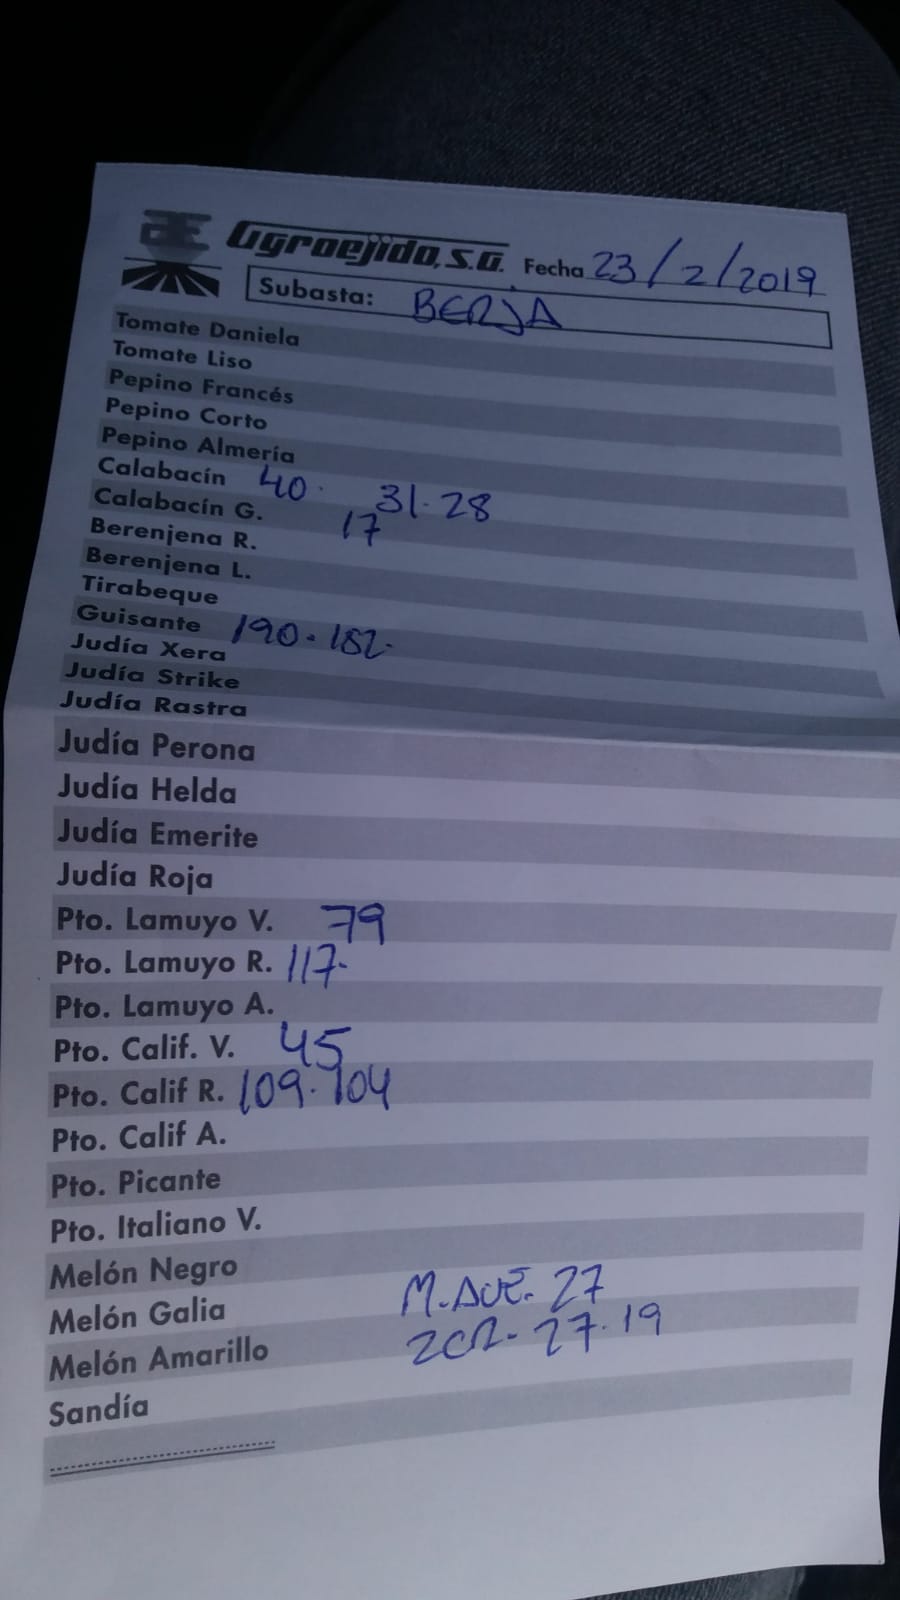 aE Agroejido, S.A. Fecha 23/2/2019
Subasta: BERJA
Tomate Daniela
Tomate Liso
Pepino Francés
Pepino Corto
Pepino Almería
Calabacín 40. 31.28
Calabacín G. 17
Berenjena R.
Berenjena L.
Tirabeque
Guisante 190.182.
Judía Xera
Judía Strike
Judía Rastra
Judía Perona
Judía Helda
Judía Emerite
Judía Roja
Pto. Lamuyo V. 79
Pto. Lamuyo R. 117.
Pto. Lamuyo A.
Pto. Calif. V. 45
Pto. Calif R. 109.104
Pto. Calif A.
Pto. Picante
Pto. Italiano V.
Melón Negro
Melón Galia M. 27
Melón Amarillo 27.19
Sandía